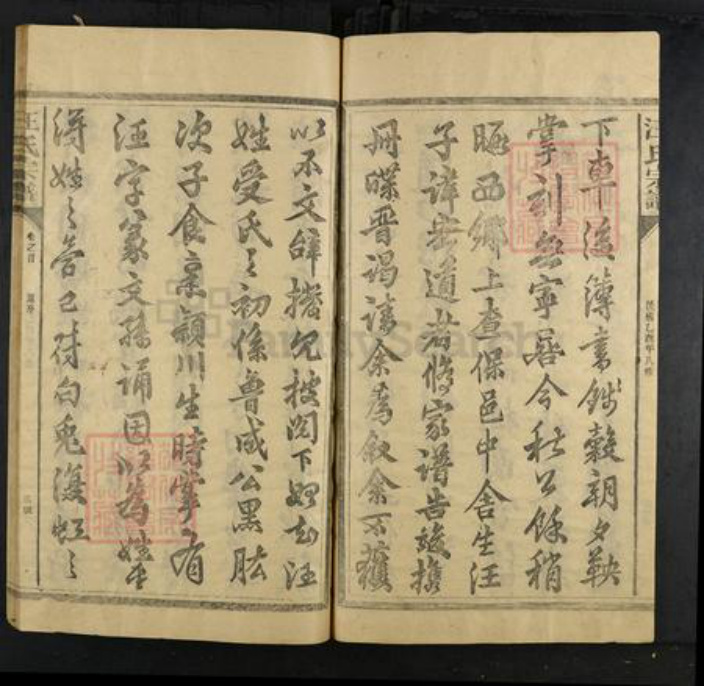 下車後簿書錢穀朝夕鞅
掌刻無寧晷今秋公餘稍
暇西鄉上查保邑中舍生汪
子諱 道者修家譜告竣攜
冊牒晋謁請余為叙余不獲
以不文辭 披閱下 知汪
姓受氏之初係魯成公黑肱
次子食采潁川生時掌有
汪字篆文孫誦因以為姓
得姓之 已 白兔 之
汪氏宗譜
卷之首
FamilySearch